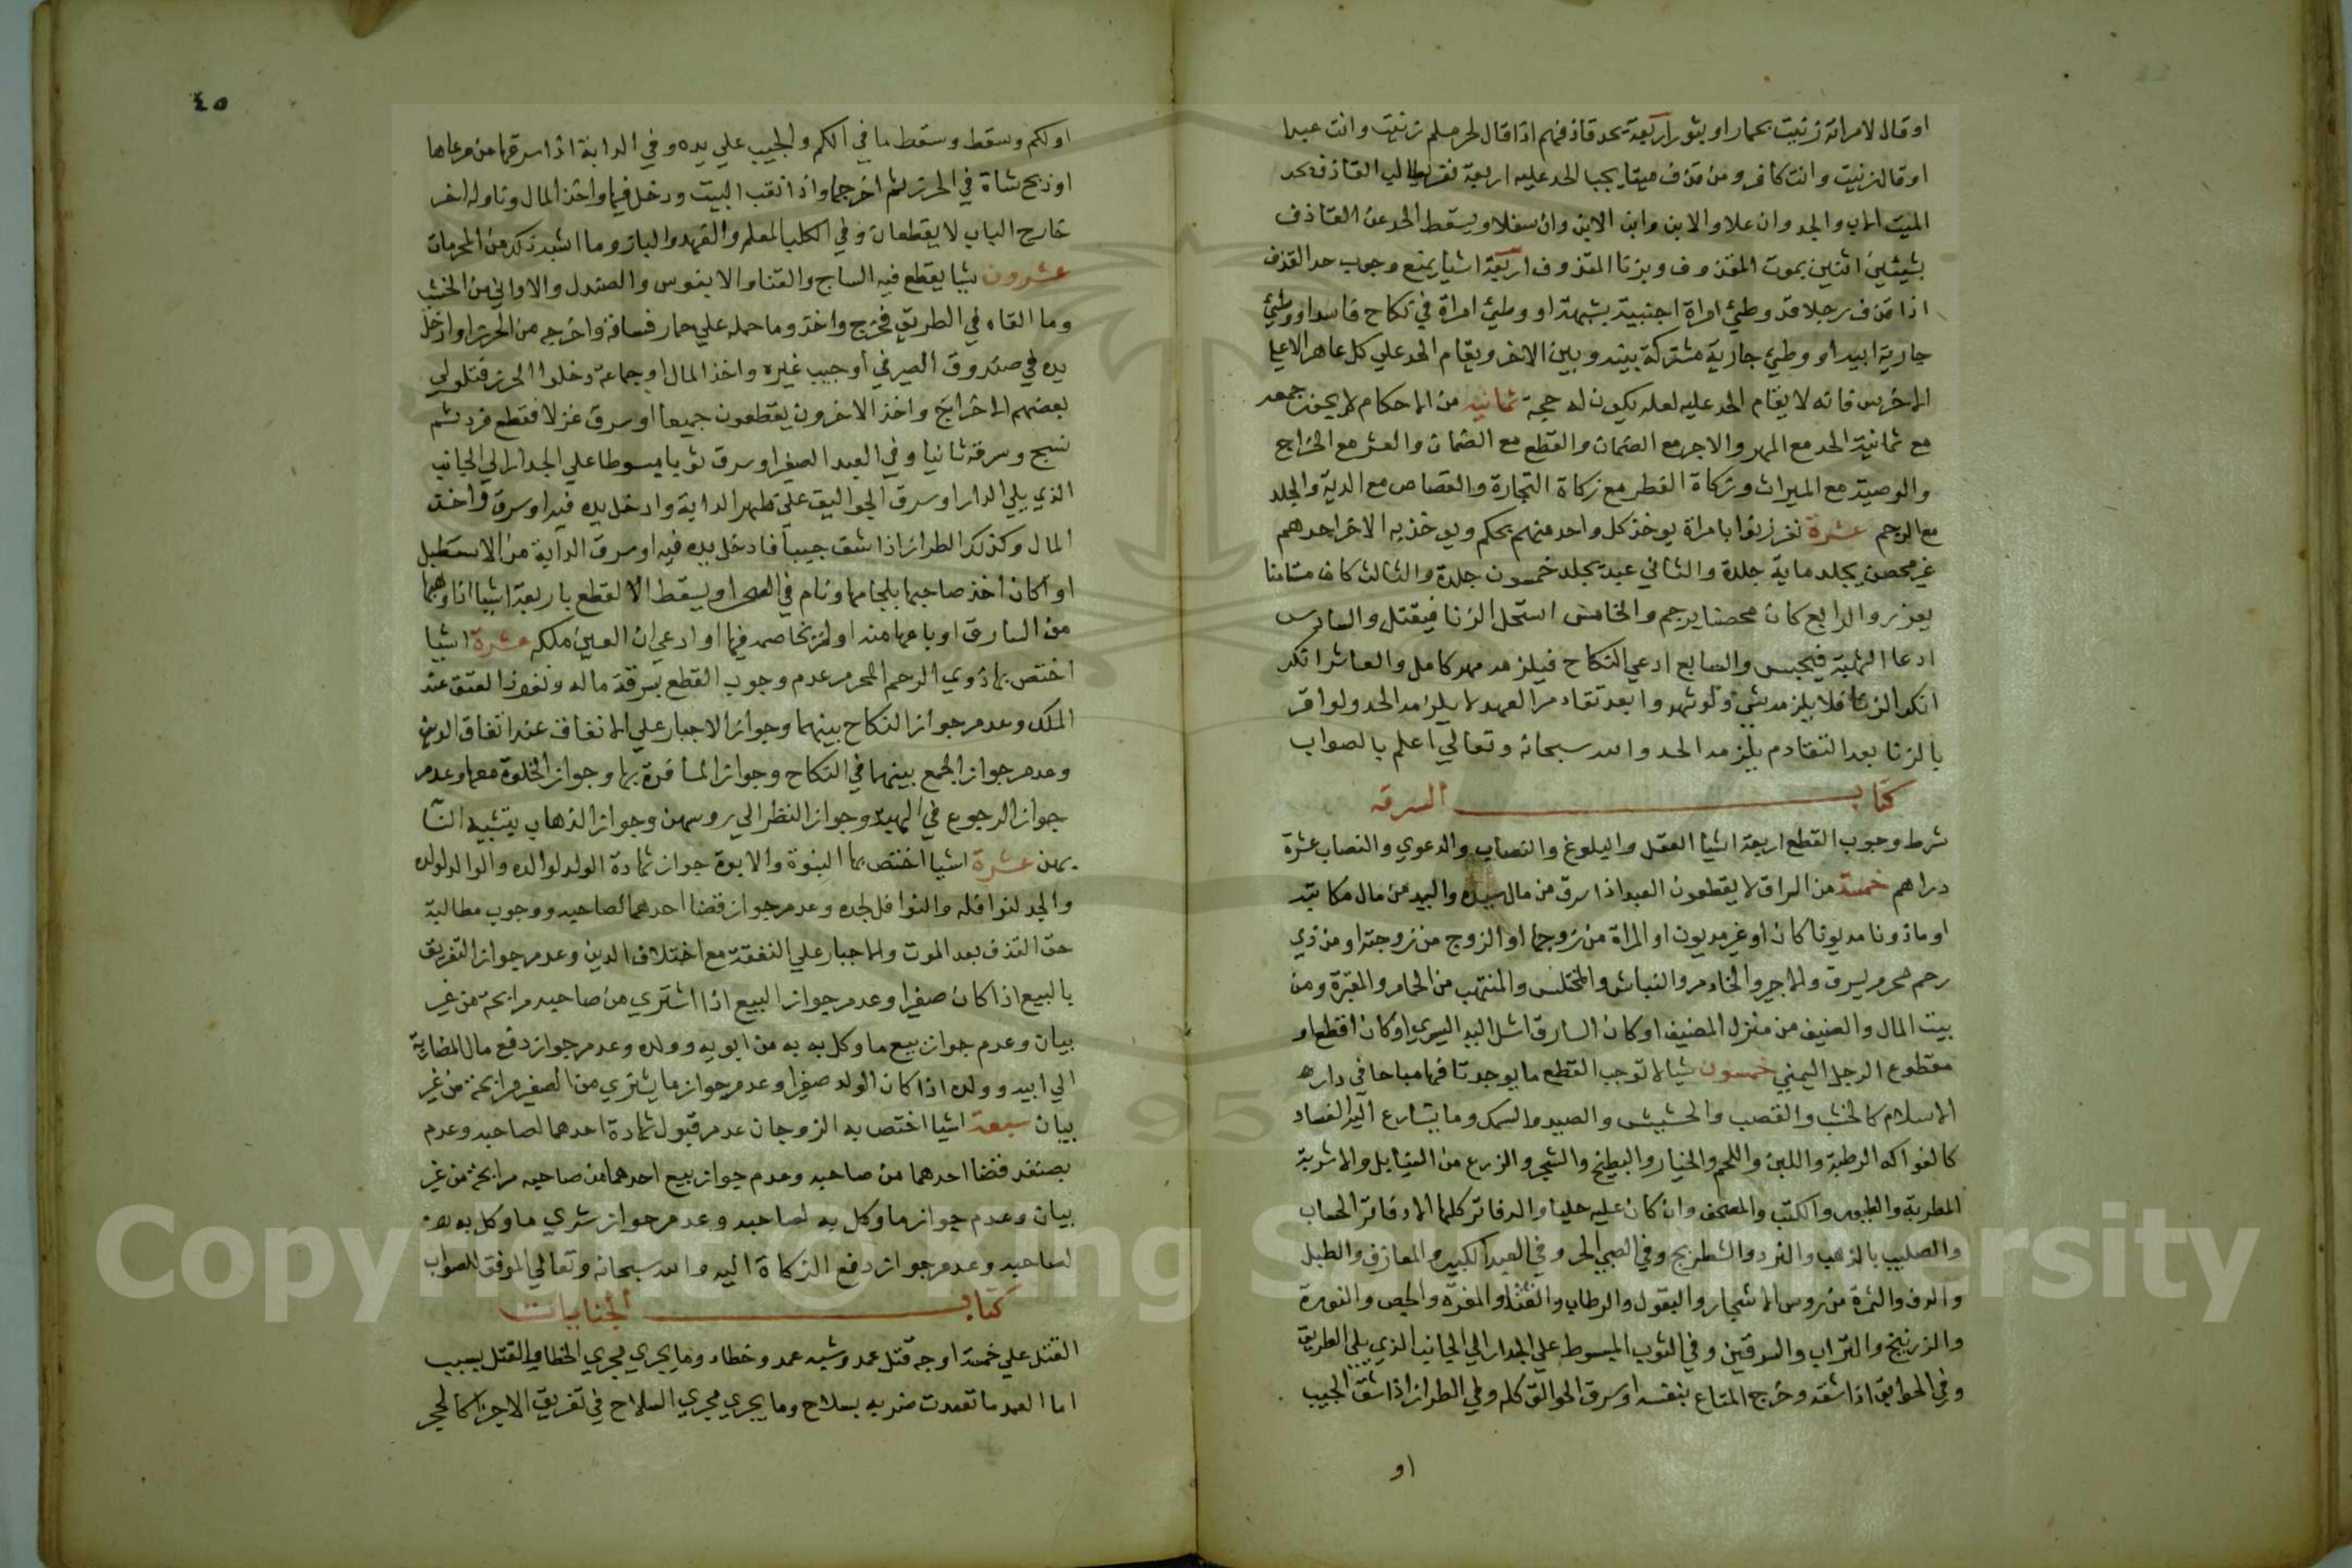 او قال لامراته زنيت بحمار او بثور اربعة يحد قاذفهم اذا قال لحر مسلم زنيت وانت عبدا
او قال زنيت وانت كافر ومن قذف ميتا يجب الحد عليه اربعة نفر يطالب القاذف بحد
الميت الاب والجد وان علا والابن وابن الابن وان سفلا ويسقط الحد عن القاذف
بشيئين اثنين بموت المقذوف وبزنا المقذوف اربعة اشيا يمنع وجوب حد القذف
اذا قذف رجلا قد وطئ امراة اجنبية بشبهة او وطئ امراة في نكاح فاسد او وطئ
جارية ابيه او وطئ جارية مشتركة بينه وبين الاخر ويقام الحد علي كل عاهر الا علي
الاخرس فانه لا يقام الحد عليه لعله يكون له حجة ثمانية من الاحكام لا يجوز جمعه
مع ثمانية الحد مع المهر والاجر مع الضمان والقطع مع الضمان والعشر مع الخراج
والوصية مع الميراث وزكاة الفطر مع زكاة التجارة والقصاص مع الدية والجلد
مع الرجم عشرة نفر زنوا بامراة يوخذ كل واحد منهم بحكم ويوخذ به الاخر احدهم
غير محصن يجلد ماية جلدة والثاني عبد يجلد خمسون جلدة والثالث كان مستامنا
يعزر والرابع كان محصنا يرجم والخامس استحل الزنا فيقتل والسادس
ادعا الشبهة فيحبس والسابع ادعي النكاح فيلزمه مهر كامل والعاشر انكر
انكر الزنا فلا يلزمه شي ولو شهدوا بعد تقادم العهد لا يلزمه الحد ولو اقر
بالزنا بعد التقادم يلزمه الحد والله سبحانه وتعالي اعلم بالصواب
كتاب السرقه
شرط وجوب القطع اربعة اشيا العقل والبلوغ والنصاب والدعوي والنصاب عشرة
دراهم خمسة من السراق لا يقطعون العبد اذا سرق من مال سيده والسيد من مال مكاتبه
او ماذونا مديونا كان او غير مديون او المراة من زوجها او الزوج من زوجته او من ذي
رحم محرم يسرق والاجير والخادم والنباش والمختلس والمنتهب من الحمام والمقبرة ومن
بيت المال والضيف من منزل المضيف او كان السارق اشل اليد اليسري او كان اقطع او
مقطوع الرجل اليمني خمسون شيا لا توجب القطع ما يوجد تافها مباحا في دار
الاسلام كالخشب والقصب والحشيش والصيد والسمك وما يتسارع اليه الفساد
كالفواكه الرطبة واللبن واللحم والخيار والبطيخ والشجر والزرع من القبايل والاشربة
المطربة والطنبور والكتب والمصحف وان كان عليه حليا والدفاتر كلها الا دفاتر الحساب
والصليب بالذهب والنرد والشطرنج وفي الصبي الحر وفي العبد الكبير والمعازف والطبل
والدف والثمرة من روس الاشجار والبقول والرطاب والقثا والمغرة والجص والنورة
والزرنيخ والتراب والسرقين وفي الثوب المبسوط علي الجدار الي الجانب الذي يلي الطريق
وفي الجوالق اذا شقه وخرج المتاع بنفسه او سرق الجوالق كله وفي الطرار اذا شق الجيب
او
٤٥
او لكم وسقط وسقط ما في الكم والجيب علي يده وفي الدابة اذا سرقها من مرعاها
او ذبح شاة في الحرز ثم اخرجها واذا نقب البيت ودخل فيها واخذ المال وناوله اخر
خارج الباب لا يقطعان وفي الكلب المعلم والفهد والباز وما اشبه ذلك من المحرمات
عشرون شيا يقطع فيه الساج والقنا والابنوس والصندل والاواني من الخشب
وما القاه في الطريق فخرج واخذ وما حمله علي حمار فساقه واخرجه من الحرز او ادخل
يده في صندوق الصيرفي او جيب غيره واخذ المال او جماعة دخلوا الحرز فتولي
بعضهم الاخراج واخذ الاخرون يقطعون جميعا او سرق غزلا فقطع فرد ثم
نسج وسرقه ثانيا وفي العبد الصغير او سرق ثوبا مبسوطا علي الجدار الي الجانب
الذي يلي الدار او سرق الجواليق علي ظهر الدابة وادخل يده فيه او سرق واخذ
المال وكذلك الطرار اذا شق جيبا فادخل يده فيه او سرق الدابة من الاسطبل
او كان اخذ صاحبها بلجامها ونام في الصحرا ويسقط القطع باربعة اشيا اذا وهبها
من السارق او باعها منه او لم يخاصمه فيها او ادعي ان العين ملكه عشرة اشيا
اختص بها ذوي الرحم المحرم عدم وجوب القطع بسرقة ماله ونفوذ العتق عند
الملك وعدم جواز النكاح بينهما وجواز الاجبار علي الانفاق عند اتفاق الدين
وعدم جواز الجمع بينهما في النكاح وجواز المسافرة بها وجواز الخلوة معها وعدم
جواز الرجوع في الهبة وجواز النظر الي روسهن وجواز الذهاب
بهن عشرة اشيا اختص بها البنوة والابوة جواز شهادة الولد لوالده والوالد لولده
والجد لنوافله والنوافل لجده وعدم جواز قضا احدهما لصاحبه ووجوب مطالبة
حق القذف بعد الموت والاجبار علي النفقة مع اختلاف الدين وعدم جواز التفريق
بالبيع اذا كان صغيرا وعدم جواز البيع اذا اشتري من صاحبه مرابحة من غير
بيان وعدم جواز بيع ما وكل به من ابويه وولده وعدم جواز دفع مال المضاربة
الي ابيه وولده اذا كان الولد صغيرا وعدم جواز ما يشتري من الصغير مرابحة من غير
بيان سبعة اشيا اختص به الزوجان عدم قبول شهادة احدهما لصاحبه وعدم
قضا احدهما من صاحبه وعدم جواز بيع احدهما من صاحبه مرابحة من غير
بيان وعدم جواز ما وكل به لصاحبه وعدم جواز شري ما وكل به
لصاحبه وعدم جواز دفع الزكاة اليه والله سبحانه وتعالي الموفق للصواب
كتاب الجنايات
القتل علي خمسة اوجه قتل عمد وشبه عمد وخطاء وما يجري مجري الخطا والقتل بسبب
اما العمد ما تعمدت ضربه بسلاح وما يجري مجري السلاح في تفريق الاجزا كالحجر
Copyright © King Saud University
1957